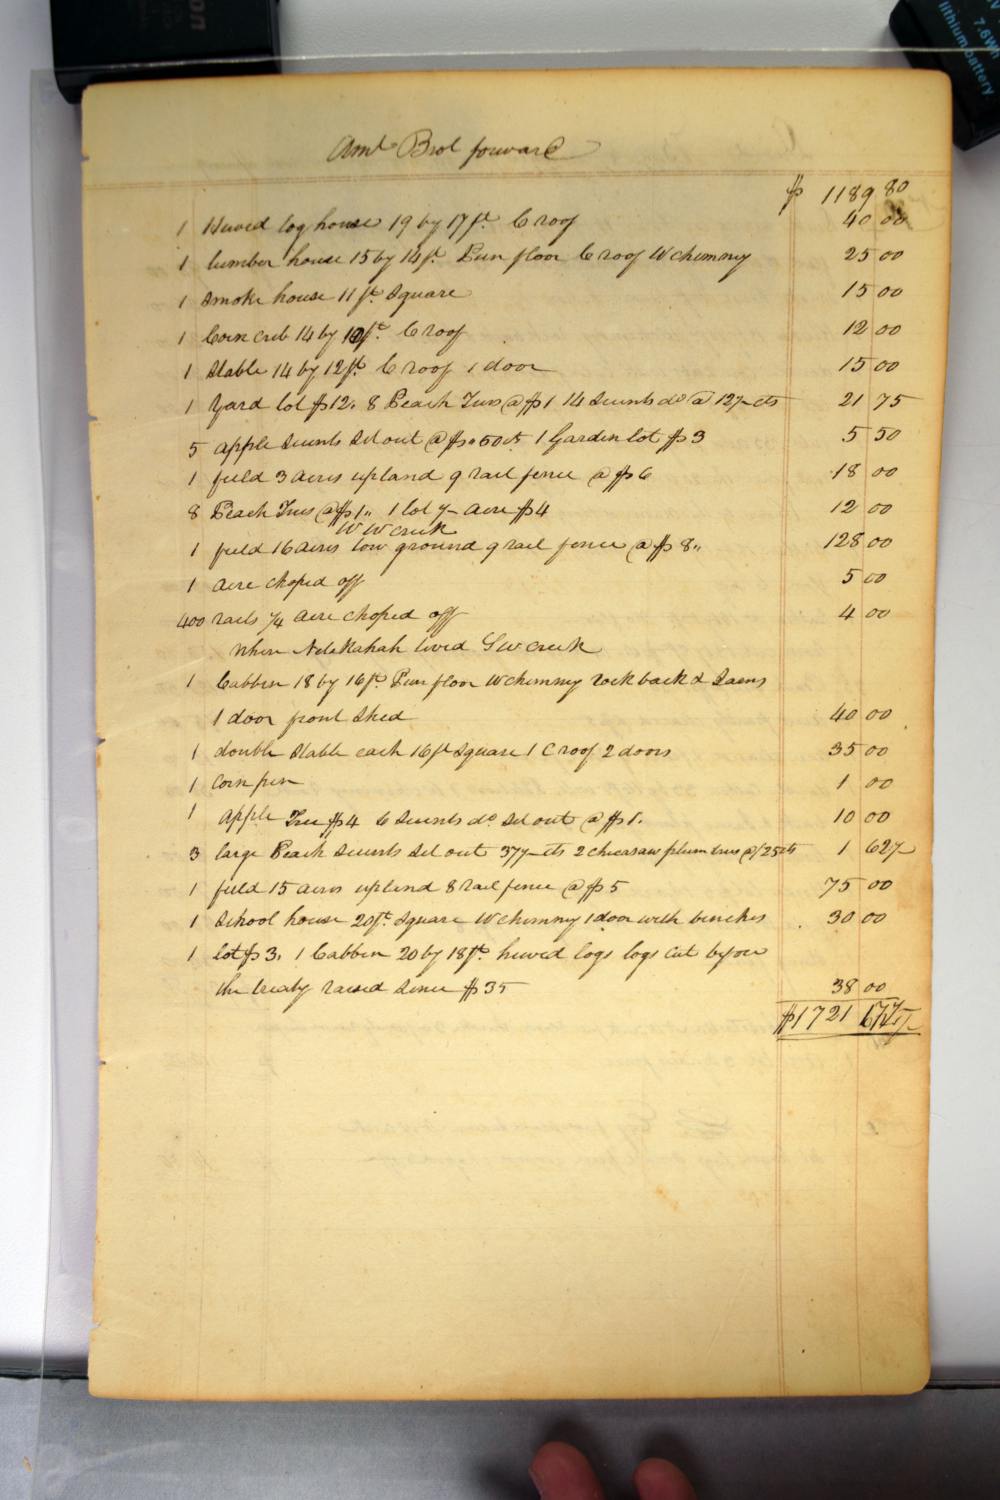 Amt Brot forward
$ 1189 80
1 Hewed log house 19 by 17 ft. C roof 40 00
1 lumber house 15 by 14 ft. Pun floor C roof W chimney 25 00
1 Smoke house 11 ft. Square 15 00
1 Corn crib 14 by 12 ft. C roof 12 00
1 Stable 14 by 12 ft. C roof 1 door 15 00
1 Yard lot $12. 8 Peach Trees @ $1 14 Scients do @ 12½ cts 21 75
5 apple Scients Set out @ $ 50 ct 1 Garden lot $3 5 50
1 field 3 acres upland 9 rail fence @ $6 18 00
8 Peach Trees @ $1 1 lot ½ acre $4 12 00
W W creek
1 field 16 acres low ground 9 rail fence @ $8 128 00
1 acre choped off 5 00
400 rails ¼ acre choped off 4 00
Where lived S W creek
1 Cabben 18 by 16 ft. Pun floor W chimney rock back & Jaems
1 door front Shed 40 00
1 double Stable each 16 ft Square 1 C roof 2 doors 35 00
1 Corn pen 1 00
1 apple Tree $4 6 Scients do Set out @ $1. 10 00
3 large Peach Scients Set out 37½ cts 2 chicasaw plum trees @ 25 cts 1 62½
1 field 15 acres upland 8 rail fence @ $5 75 00
1 School house 20 ft. Square W chimney 1 door with benches 30 00
1 lot $3. 1 Cabben 20 by 18 ft. hewed logs logs cut before
the treaty raised Since $35 38 00
$1721 67½
7.6Wh
lithium battery